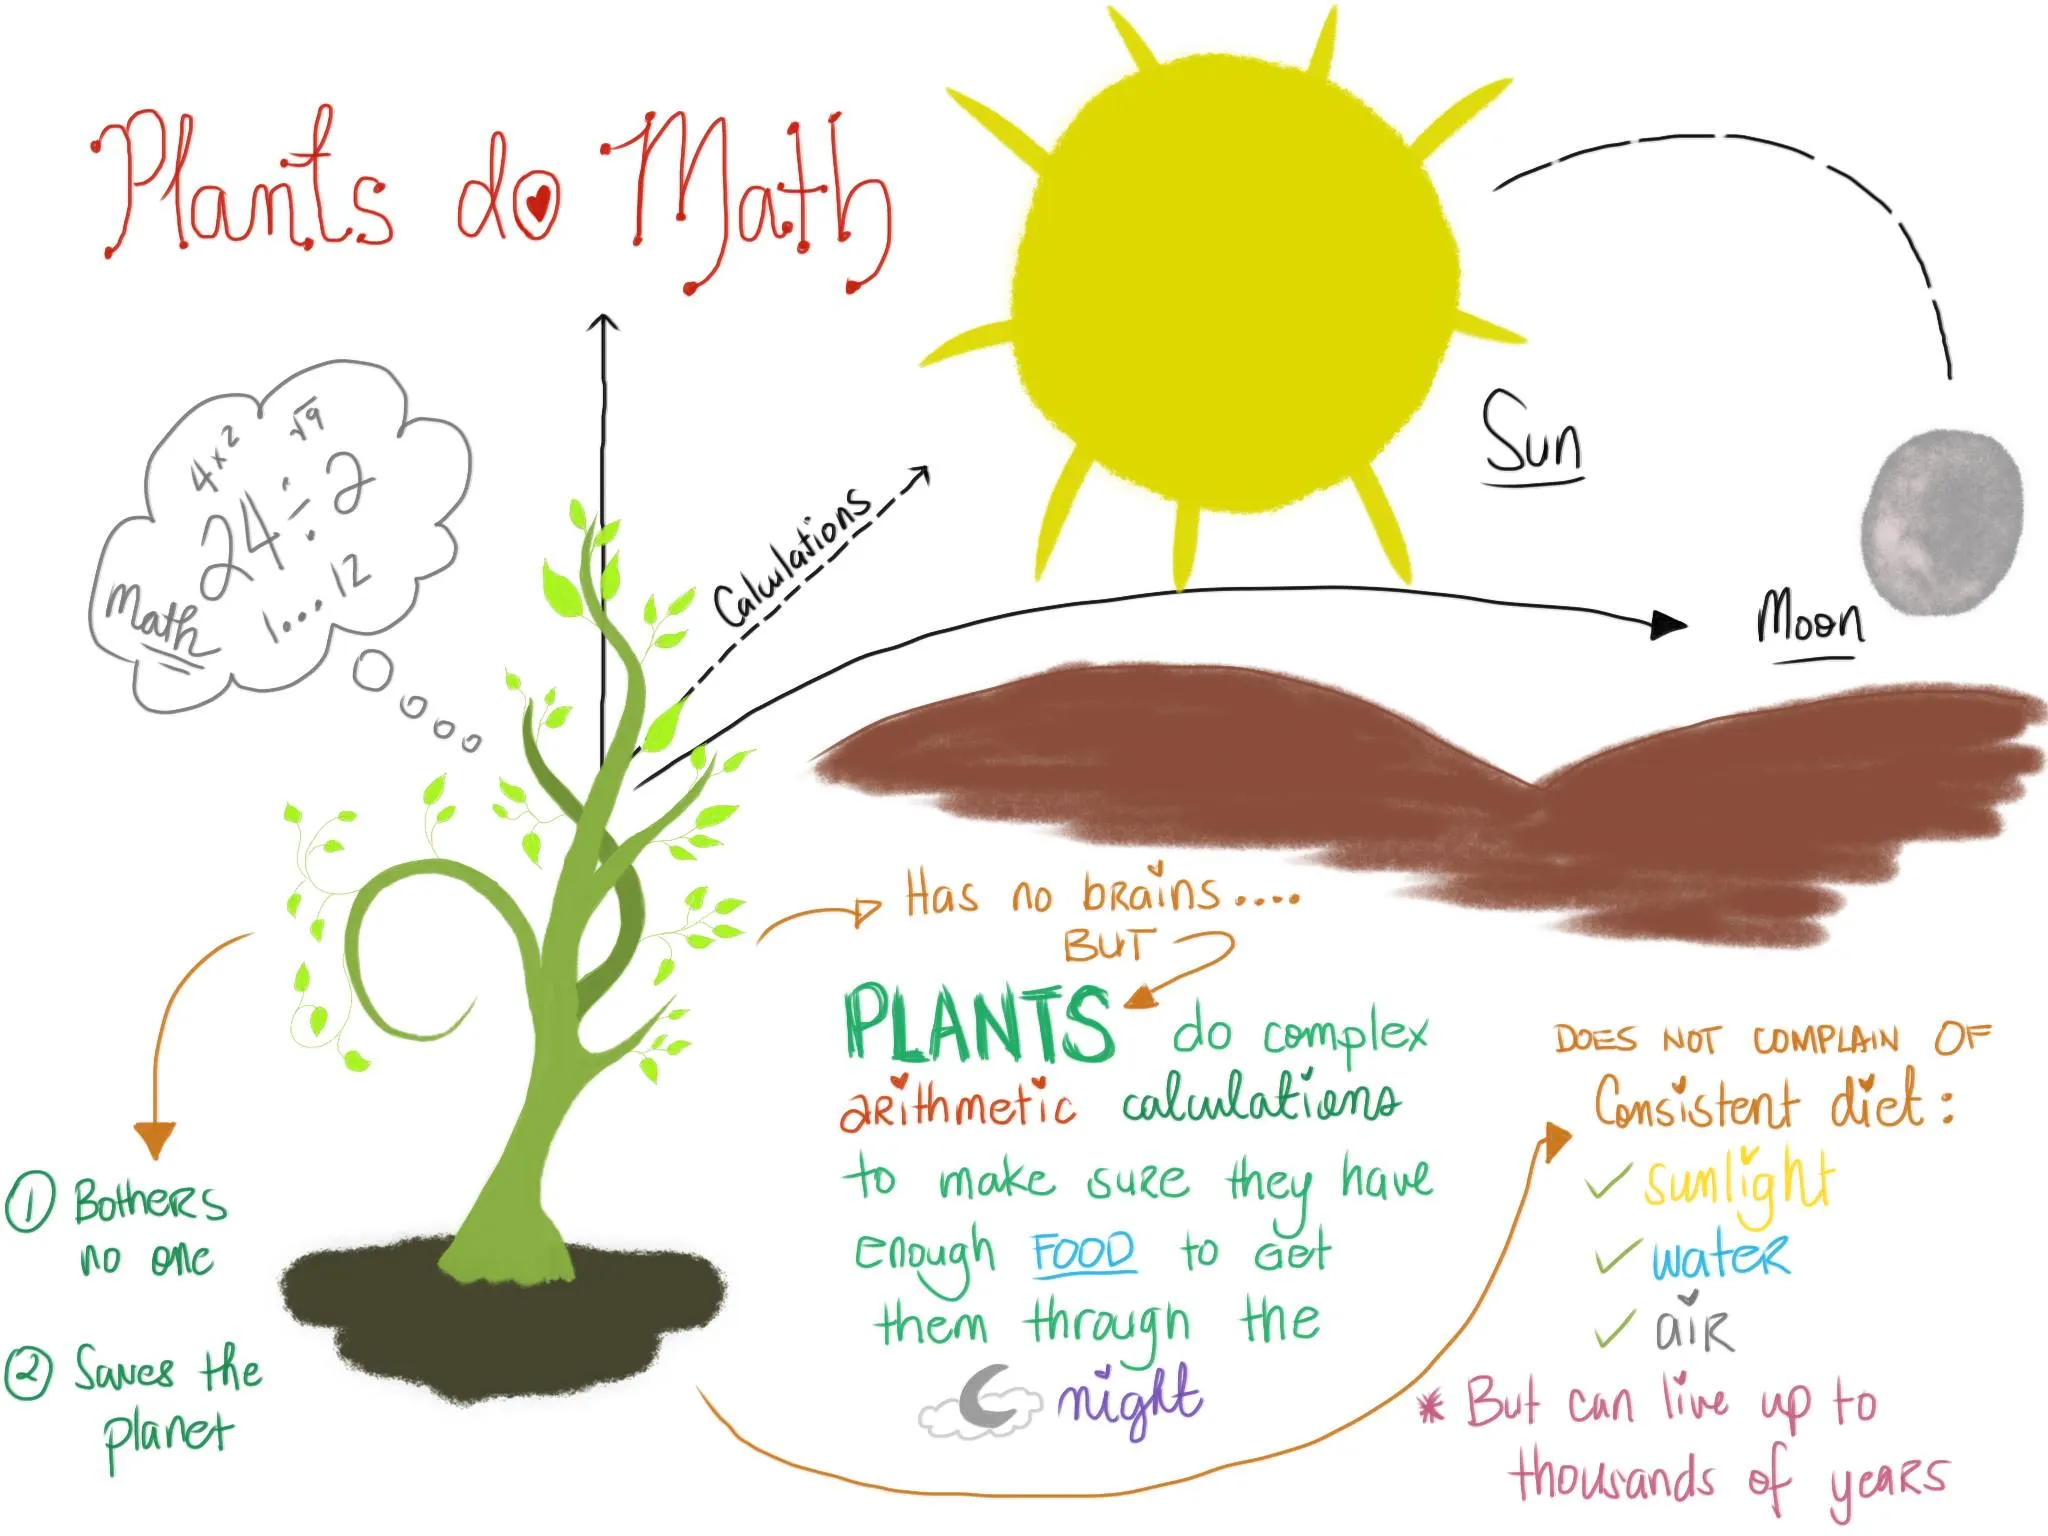 Plants do Math
4x2
√9
24÷2
1...12
Math
Calculations
Sun
Moon
Has no brains....
BUT
PLANTS do complex
arithmetic calculations
to make sure they have
enough FOOD to get
them through the
night
① Bothers
no one
② Saves the
planet
DOES NOT COMPLAIN OF
Consistent diet:
✓ sunlight
✓ water
✓ air
* But can live up to
thousands of years